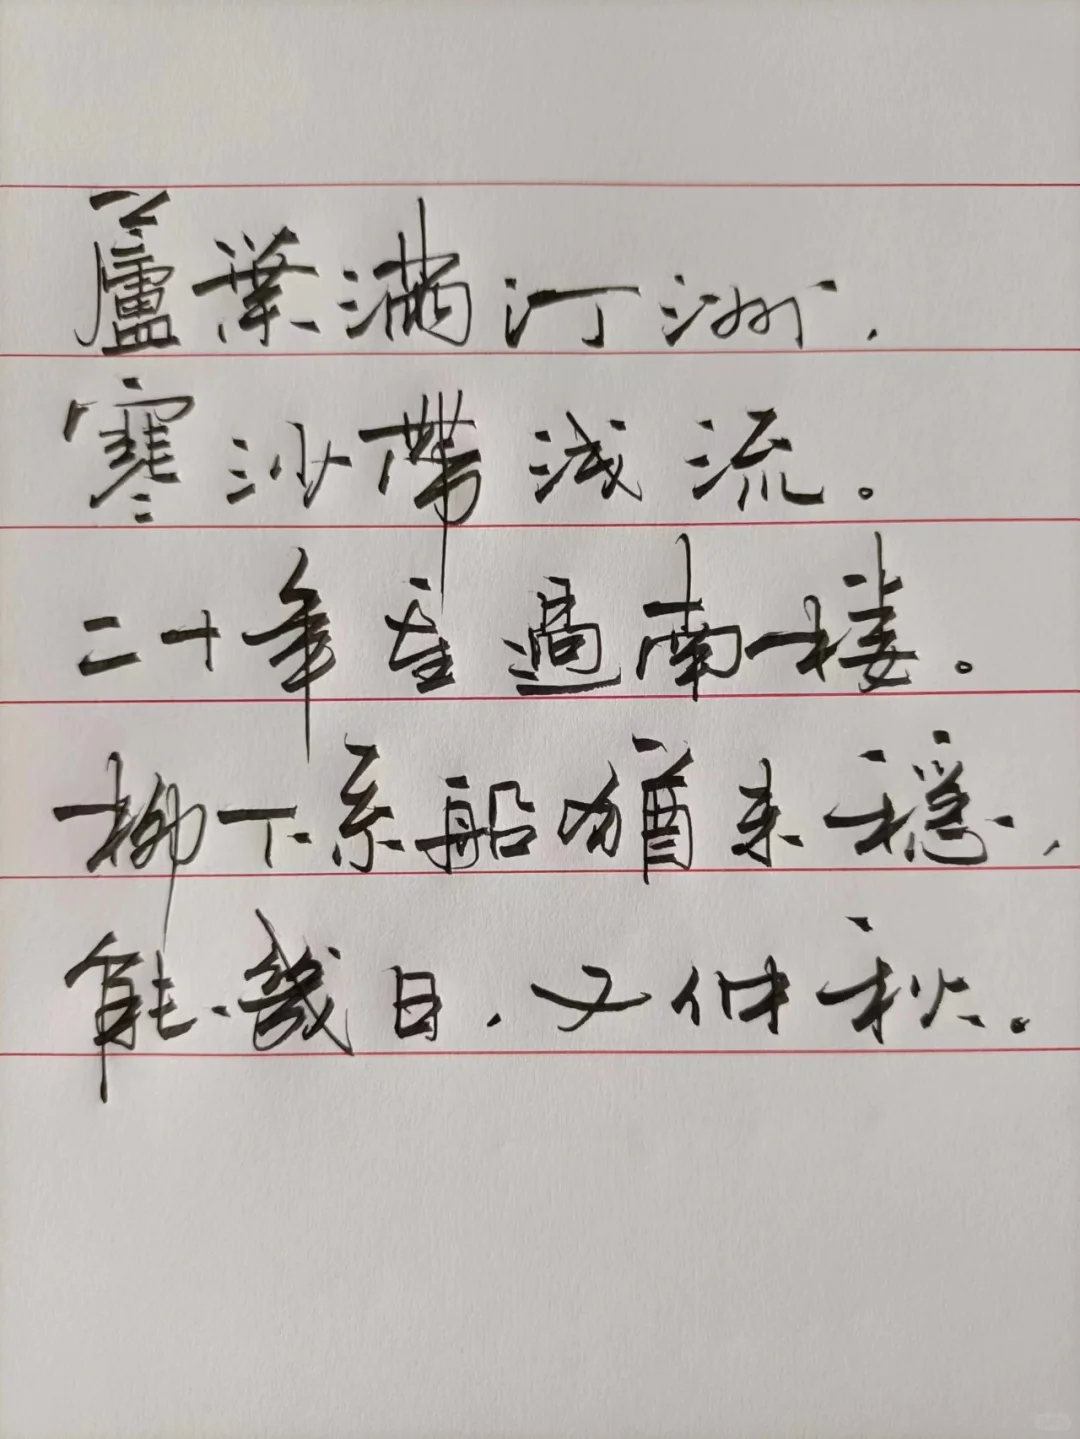 蘆葉满汀洲,
寒沙帶浅流。
二十年重過南楼。
柳下系船猶未穩,
能幾日,又仲秋。